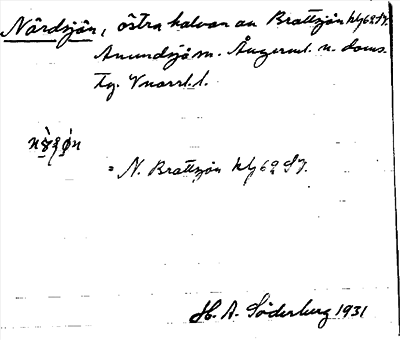 Nördsjön, östra halvan av Brattsjön
Anundsjö sn. Ångerml. n. doms.
Tg. Vnorrl. l.
= N. Brattsjön
H. A. Söderberg 1931